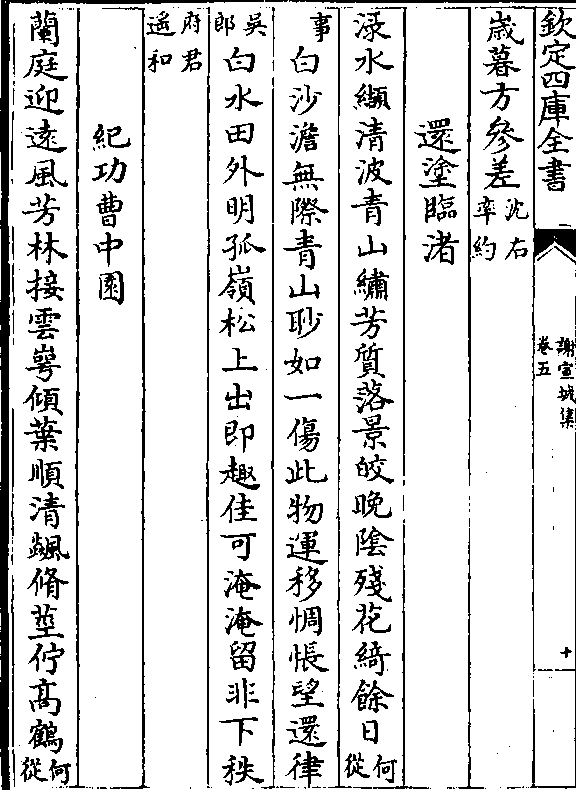 欽定四庫全書
謝宣城集
卷五
十
歲暮方參差沈右率約
還塗臨渚
渌水纈清波青山繡芳質落景皎晚陰殘花綺餘日何從
事白沙澹無際青山眇如一傷此物運移惆悵望還律
吳郎白水田外明孤嶺松上出即趣佳可淹淹留非下秩
府君遥和
紀功曹中園
蘭庭迎遠風芳林接雲崿傾葉順清飊脩莖佇高鶴何從